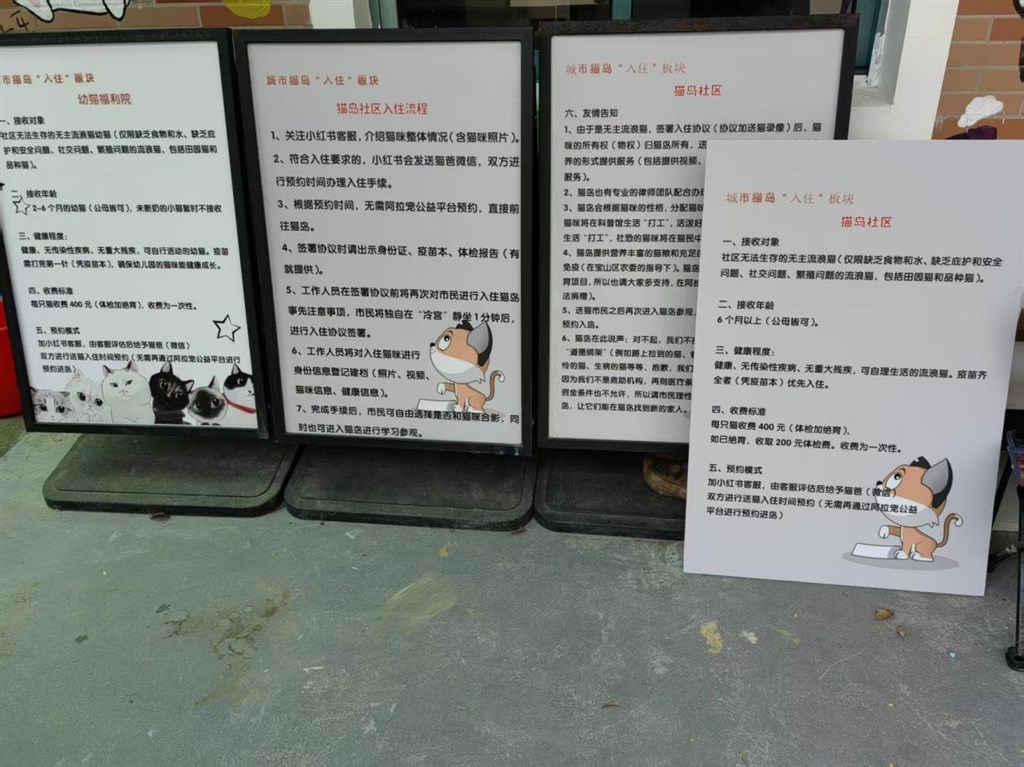 市猫岛“入住”板块
幼猫福利院
一、接收对象
社区无法生存的无主流浪猫幼猫（仅限缺乏食物和水、缺乏庇
护和安全问题、社交问题、繁殖问题的流浪猫，包括田园猫和
品种猫）。
二、接收年龄
2-6个月的幼猫（公母皆可），未断奶的小猫暂时不接收
三、健康程度：
健康、无传染性疾病、无重大残疾，可自行活动的幼猫。疫苗
需打完第一针（凭疫苗本），确保幼儿园的猫咪能健康成长。
四、收费标准
每只猫收费400元（体检加绝育），收费为一次性。
五、预约模式
加小红书客服，由客服评估后给予猫爸（微信）
双方进行送猫入住时间预约（无需再通过阿拉宠公益平台进行
预约进岛）
城市猫岛“入住”板块
猫岛社区入住流程
1、关注小红书客服，介绍猫咪整体情况（含猫咪照片）。
2、符合入住要求的，小红书会发送猫爸微信，双方进
行预约时间办理入住手续。
3、根据预约时间，无需阿拉宠公益平台预约，直接前
往猫岛。
4、签署协议时请出示身份证、疫苗本、体检报告（有
就提供）。
5、工作人员在签署协议前将再次对市民进行入住猫岛
事先注意事项，市民将独自在“冷宫”静坐1分钟后，
进行入住协议签署。
6、工作人员将对入住猫咪进行
身份信息登记建档（照片、视频、
猫咪信息、健康信息）。
7、完成手续后，市民可自由选择是否和猫咪合影，同
时也可进入猫岛进行学习参观。
城市猫岛“入住”板块
猫岛社区
六、友情告知
1、由于是无主流浪猫，签署入住协议（协议加送猫录像）后，猫
咪的所有权（物权）归猫岛所有，送
养的形式提供服务（包括提供视频、
服务）。
2、猫岛也有专业的律师团队配合办
3、猫岛会根据猫咪的性格，分配猫
咪将在科普馆生活“打工”，活泼好
生活“打工”，社恐的猫咪将在猫民中
4、猫岛提供营养丰富的猫粮和充足的
免疫（在宝山区农委的指导下）。猫岛
育项目，所以也请大家多支持，在阿拉
法捐赠）。
5、送猫市民之后再次进入猫岛参观，
预约入岛。
6、猫岛在此说声：对不起，我们不
“道德绑架”（例如路上捡到的猫、
怜的猫、生病的猫等等，抱歉，我们
因为我们不是救助机构，再则医疗条
资金条件也不允许，所以请市民理性
岛，让它们能在猫岛找到新的家人。
城市猫岛“入住”板块
猫岛社区
一、接收对象
社区无法生存的无主流浪猫（仅限缺乏食物和水、缺乏庇护和安全
问题、社交问题、繁殖问题的流浪猫，包括田园猫和品种猫）。
二、接收年龄
6个月以上（公母皆可）。
三、健康程度：
健康、无传染性疾病、无重大残疾，可自理生活的流浪猫。疫苗齐
全者（凭疫苗本）优先入住。
四、收费标准
每只猫收费400元（体检加绝育），
如已绝育，收取200元体检费。收费为一次性。
五、预约模式
加小红书客服，由客服评估后给予猫爸（微信）
双方进行送猫入住时间预约（无需再通过阿拉宠公益
平台进行预约进岛）